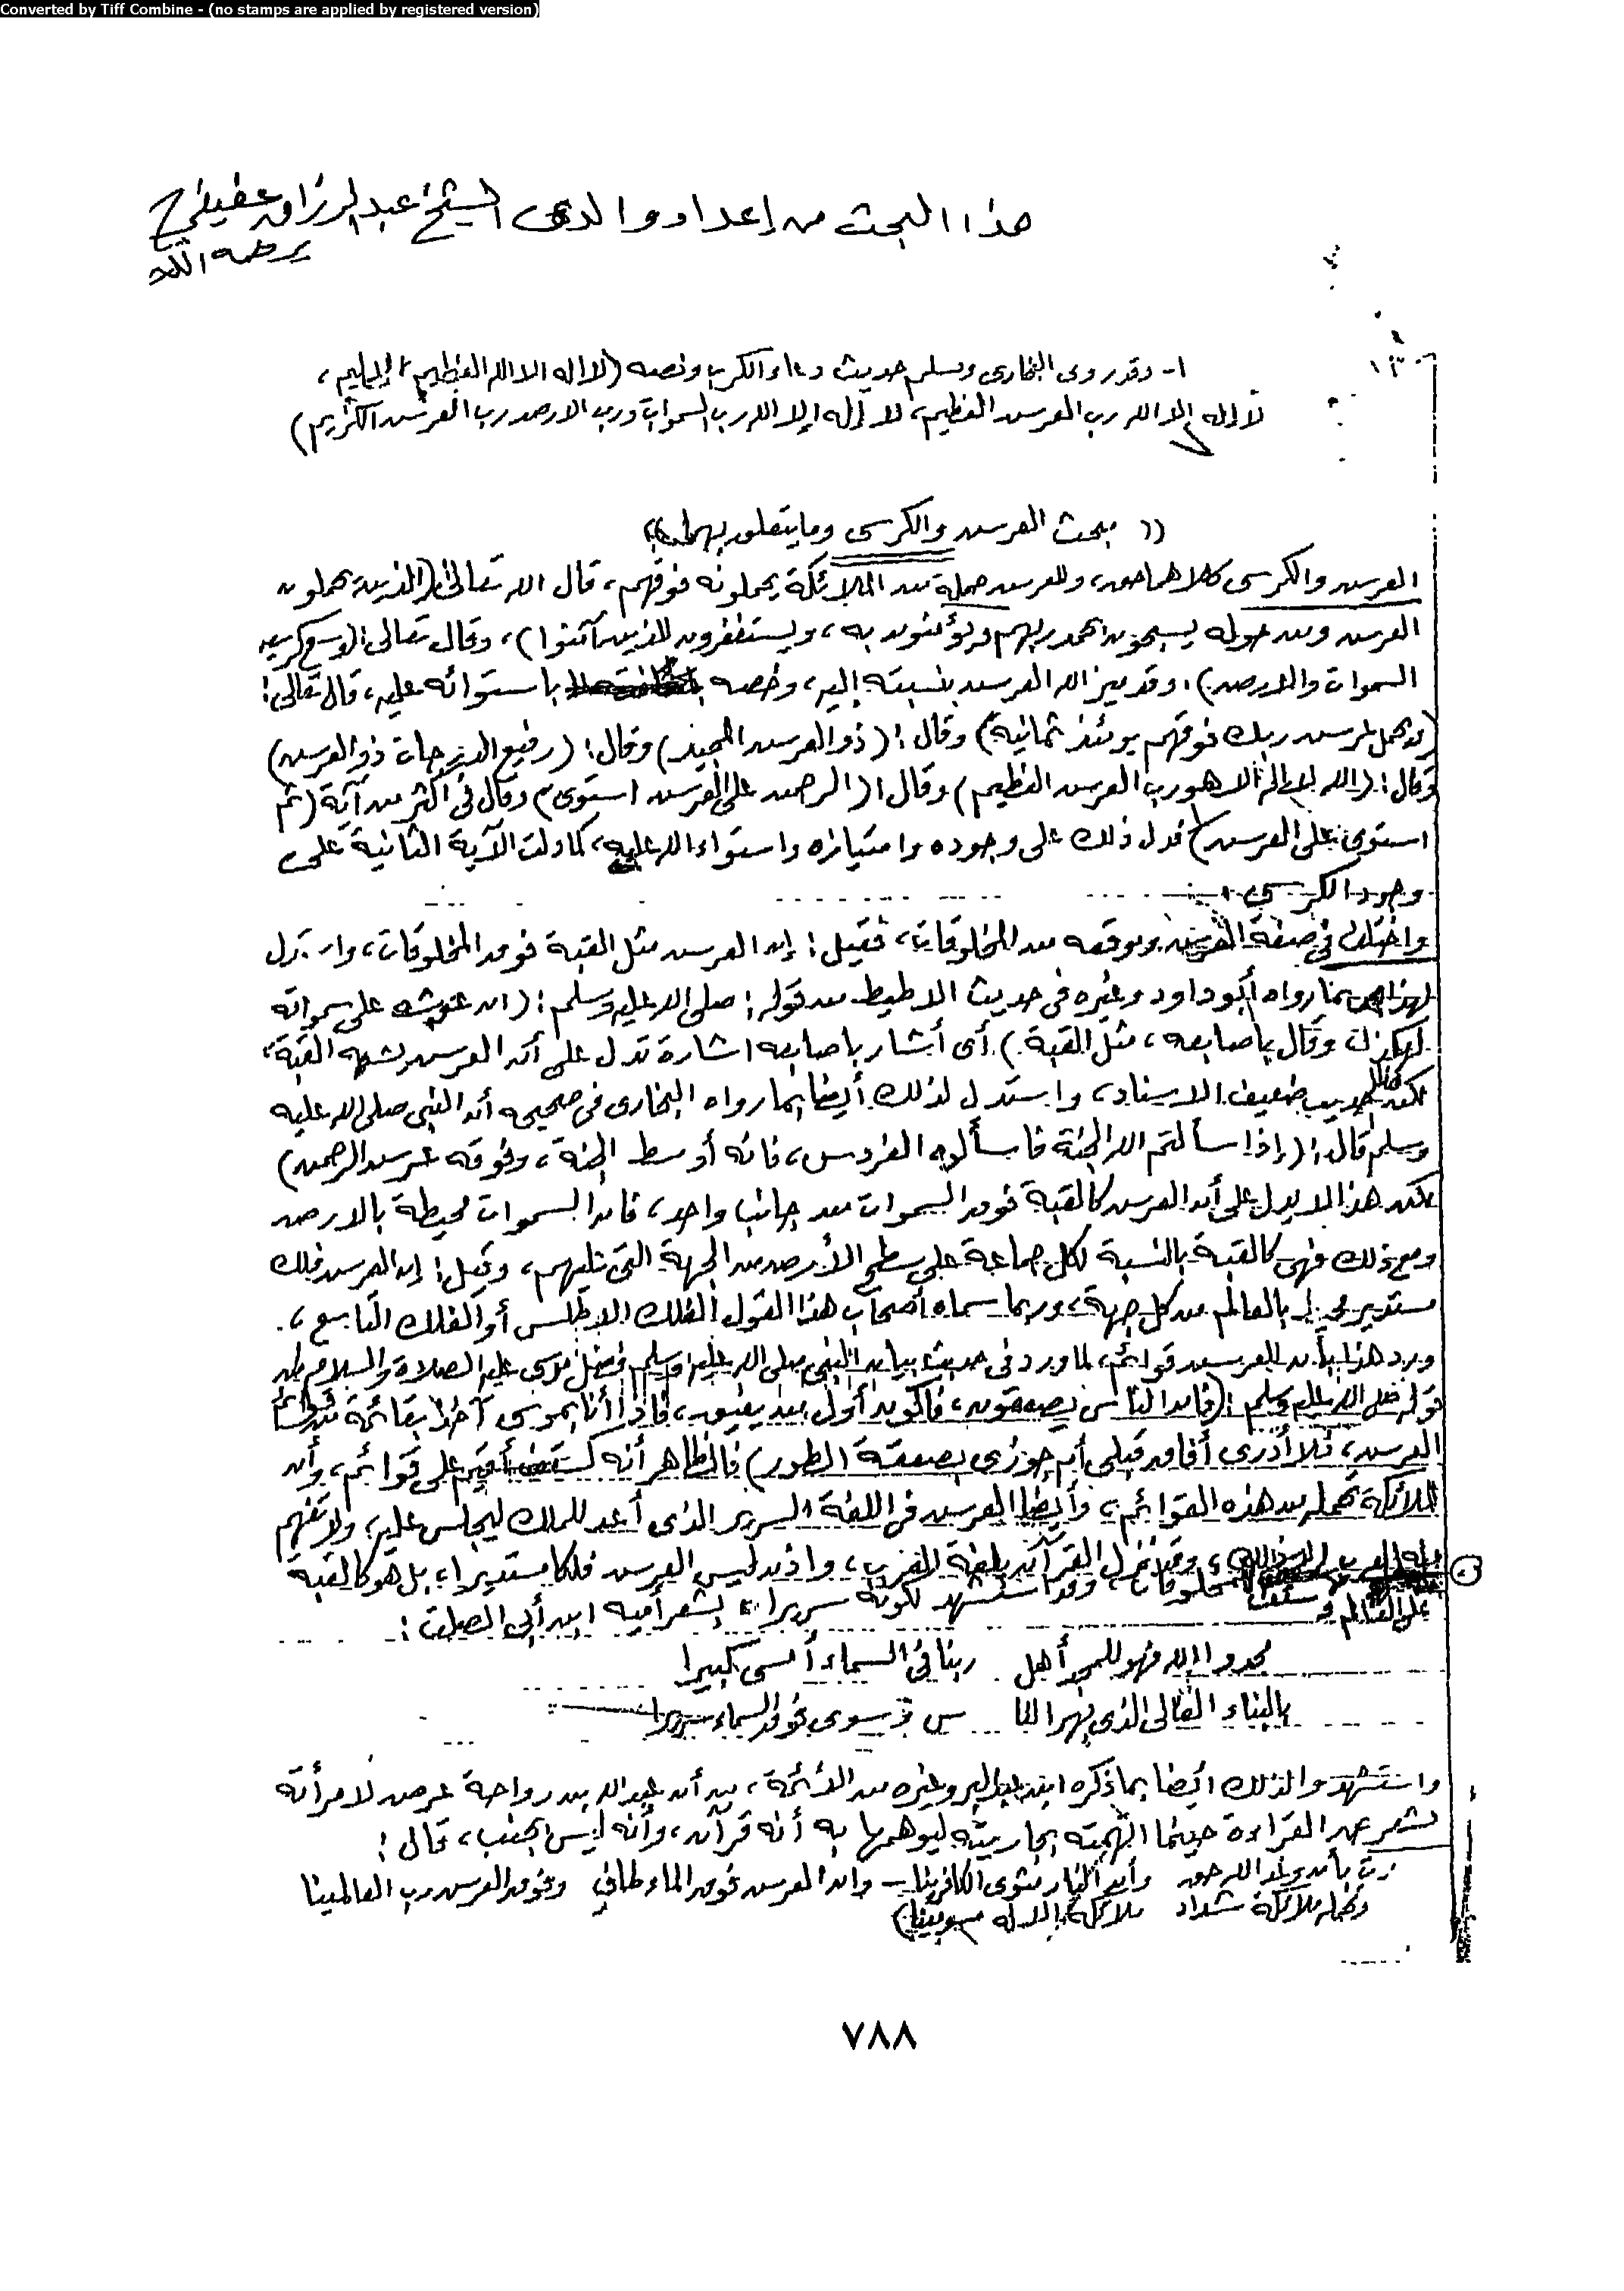 Converted by Tiff Combine - (no stamps are applied by registered version)
هذا البحث من إعداد والدى الشيخ عبد الرزاق عفيفى
يرحمه الله
١- وقد روى البخارى ومسلم حديث دعاء الكرب ونصه (لا اله الا الله العظيم الحليم،
لا اله إلا الله رب العرش العظيم، لا إله إلا الله رب السموات ورب الارض رب العرش الكريم)
(( مبحث العرش والكرسى وما يتعلق بهما ))
العرش والكرسى كلاهما حق، وللعرش حملة من الملائكة يحملونه فوقهم، قال الله تعالى: (الذين يحملون
العرش ومن حوله يسبحون بحمد ربهم ويؤمنون به، ويستغفرون للذين آمنوا)، وقال تعالى: (وسع كرسيه
السموات والارض)، وقد ميز الله العرش بنسبته إليه، وخصه باستوائه عليه، قال تعالى:
(ويحمل عرش ربك فوقهم يومئذ ثمانية) وقال: (ذو العرش المجيد) وقال: (رفيع الدرجات ذو العرش)
وقال: (الله لا إله الا هو رب العرش العظيم) وقال: (الرحمن على العرش استوى) وقال فى أكثر من آية (ثم
استوى على العرش) فدل ذلك على وجوده وامتيازه واستواء الله عليه، كما دلت الآية الثانية على
وجود الكرسى
واختلف فى صفة العرش وموقعه من المخلوقات، فقيل: إن العرش مثل القبة فوق المخلوقات، واستدل
لهذا بما رواه أبو داود وغيره فى حديث الاطيط من قوله صلى الله عليه وسلم: (ان عرشه على سمواته
لهكذا وقال بأصابعه، مثل القبة) أى أشار بأصابعه اشارة تدل على أن العرش يشبه القبة،
لكنه حديث ضعيف الاسناد، واستدل لذلك أيضا بما رواه البخارى فى صحيحه أن النبى صلى الله عليه
وسلم قال: (إذا سألتم الله الجنة فاسألوه الفردوس، فانه أوسط الجنة، وفوقه عرش الرحمن)
لكن هذا لا يدل على أن العرش كالقبة فوق السموات من جانب واحد، فان السموات محيطة بالارض
ومع ذلك فهى كالقبة بالنسبة لكل جماعة على سطح الأرض من الجهة التى تليهم، وقيل: إن العرش فلك
مستدير محيط بالعالم من كل جهة، وربما سماه أصحاب هذا القول الفلك الاطلس أو الفلك التاسع،
ويرد هذا بأن للعرش قوائم، لما ورد فى حديث بيان النبى صلى الله عليه وسلم فضل موسى عليه الصلاة والسلام من
قوله صلى الله عليه وسلم: (فان الناس يصعقون، فأكون أول من يفيق، فاذا أنا بموسى آخذ بقائمة من قوائم
العرش، فلا أدرى أفاق قبلى أم جوزى بصعقة الطور) فالظاهر أنه أقيم على قوائم، وأن
الملائكة تحمله من هذه القوائم، وأيضا العرش فى اللغة السرير الذى أعد للملك ليجلس عليه، ولا تفهم
منه العرب إلا ذلك، وقد نزل القرآن بلغة العرب، واذن ليس العرش فلكا مستديرا، بل هو كالقبة
على العالم وسقف المخلوقات، وقد استشهد لكونه سريرا بشعر أميه ابن أبى الصلت:
مجدوا الله فهو للمجد أهل ربنا فى السماء أمسى كبيرا
بالبناء العالى الذى بهر النا س وسوى فوق السماء سريرا
واستشهدوا لذلك ايضا بما ذكره ابن عبد البر وغيره من الأئمة، من أن عبد الله بن رواحة عرض لامرأته
بشعر عن القراءة حينما اتهمته بجاريته ليوهمها به أنه قرآن، وأنه ليس بجنب، قال:
بأن وعد الله حق وأن النار مثوى الكافرينا - وان العرش فوق الماء طافى وفوق العرش رب العالمينا
وتحمله ملائكة شداد ملائكة الاله مسومينا)
٧٨٨